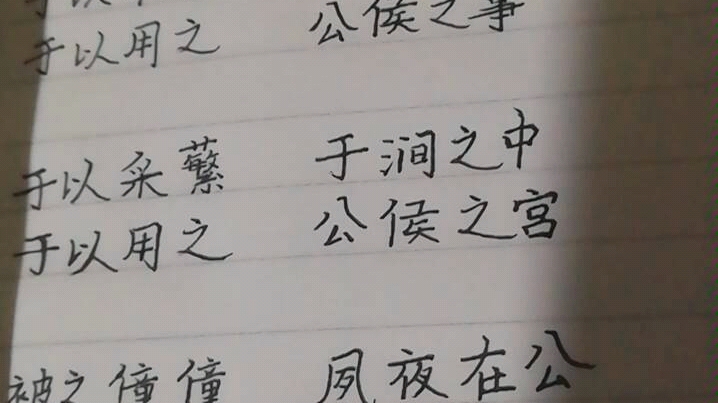 于以用之 公侯之事
于以采蘩 于涧之中
于以用之 公侯之宫
被之僮僮 夙夜在公